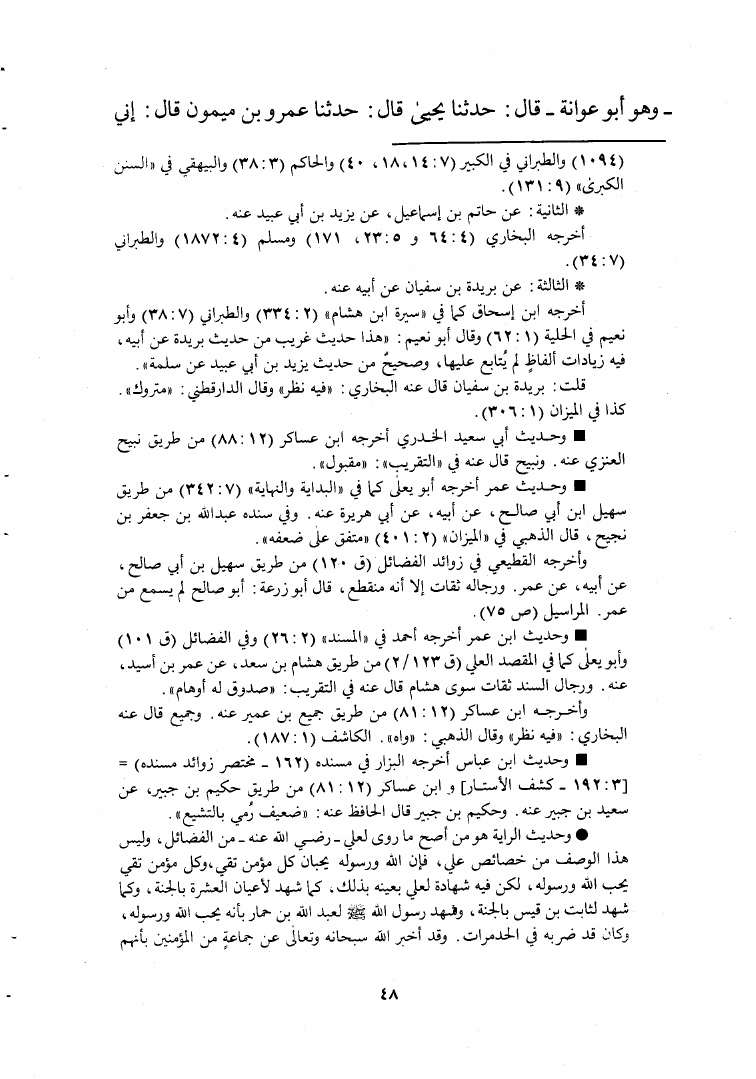 ـ وهو أبو عوانة ـ قال : حدثنا يحيىٰ قال : حدثنا عمرو بن ميمون قال : إني
(١٠٩٤) والطبراني في الكبير (٧ : ١٤، ١٨، ٤٠) والحاكم (٣ : ٣٨) والبيهقي في «السنن
الكبرىٰ» (٩ : ١٣١).
* الثانية : عن حاتم بن إسماعيل، عن يزيد بن أبي عبيد عنه.
أخرجه البخاري (٤ : ٦٤ و ٥ : ٢٣، ١٧١) ومسلم (٤ : ١٨٧٢) والطبراني
(٧ : ٣٤).
* الثالثة : عن بريدة بن سفيان عن أبيه عنه.
أخرجه ابن إسحاق كما في «سيرة ابن هشام» (٢ : ٣٣٤) والطبراني (٧ : ٣٨) وأبو
نعيم في الحلية (١ : ٦٢) وقال أبو نعيم : «هذا حديث غريب من حديث بريدة عن أبيه،
فيه زيادات ألفاظٍ لم يُتابع عليها، وصحيحٌ من حديث يزيد بن أبي عبيد عن سلمة».
قلت : بريدة بن سفيان قال عنه البخاري : «فيه نظر» وقال الدارقطني : «متروك».
كذا في الميزان (١ : ٣٠٦).
■ وحديث أبي سعيد الخدري أخرجه ابن عساكر (١٢ : ٨٨) من طريق نبيح
العنزي عنه. ونبيح قال عنه في «التقريب» : «مقبول».
■ وحديث عمر أخرجه أبو يعلىٰ كما في «البداية والنهاية» (٧ : ٣٤٢) من طريق
سهيل ابن أبي صالح، عن أبيه، عن أبي هريرة عنه. وفي سنده عبدالله بن جعفر بن
نجيح، قال الذهبي في «الميزان» (٢ : ٤٠١) «متفق علىٰ ضعفه».
وأخرجه القطيعي في زوائد الفضائل (ق ١٢٠) من طريق سهيل بن أبي صالح،
عن أبيه، عن عمر. ورجاله ثقات إلا أنه منقطع، قال أبو زرعة : أبو صالح لم يسمع من
عمر. المراسيل (ص ٧٥).
■ وحديث ابن عمر أخرجه أحمد في «المسند» (٢ : ٢٦) وفي الفضائل (ق ١٠١)
وأبو يعلىٰ كما في المقصد العلي (ق ١٢٣/ ٢) من طريق هشام بن سعد، عن عمر بن أسيد،
عنه. ورجال السند ثقات سوى هشام قال عنه في التقريب : «صدوق له أوهام».
وأخرجه ابن عساكر (١٢ : ٨١) من طريق جميع بن عمير عنه. وجميع قال عنه
البخاري : «فيه نظر» وقال الذهبي : «واه». الكاشف (١ : ١٨٧).
■ وحديث ابن عباس أخرجه البزار في مسنده (١٦٢ ـ مختصر زوائد مسنده) =
[٣ : ١٩٢ ـ كشف الأستار] و ابن عساكر (١٢ : ٨١) من طريق حكيم بن جبير، عن
سعيد بن جبير عنه. وحكيم بن جبير قال الحافظ عنه : «ضعيف رُمي بالتشيع».
● وحديث الراية هو من أصح ما روى لعلي ـ رضي الله عنه ـ من الفضائل، وليس
هذا الوصف من خصائص علي، فإن الله ورسوله يحبان كل مؤمن تقي، وكل مؤمن تقي
يحب الله ورسوله، لكن فيه شهادة لعلي بعينه بذلك، كما شهد لأعيان العشرة بالجنة، وكما
شهد لثابت بن قيس بالجنة، وشهد رسول الله ﷺ لعبد الله بن حمار بأنه يحب الله ورسوله،
وكان قد ضربه في الحدمرات. وقد أخبر الله سبحانه وتعالىٰ عن جماعةٍ من المؤمنين بأنهم
٤٨